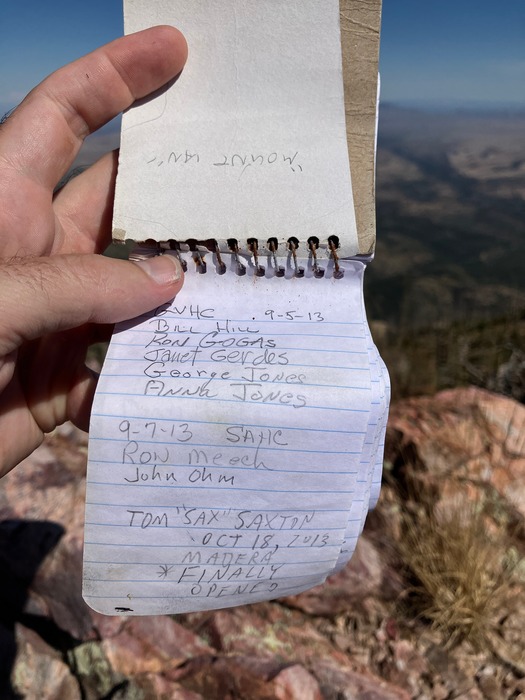 "MOUNT IAN"
GVHC . 9-5-13
BILL HILL
RON GOGAS
Janet Gerdes
George Jones
Anna Jones
9-7-13 SAHC
RON Meech
John Ohm
TOM "SAX" SAXTON
OCT 18, 2013
MADERA
* FINALLY
OPENED